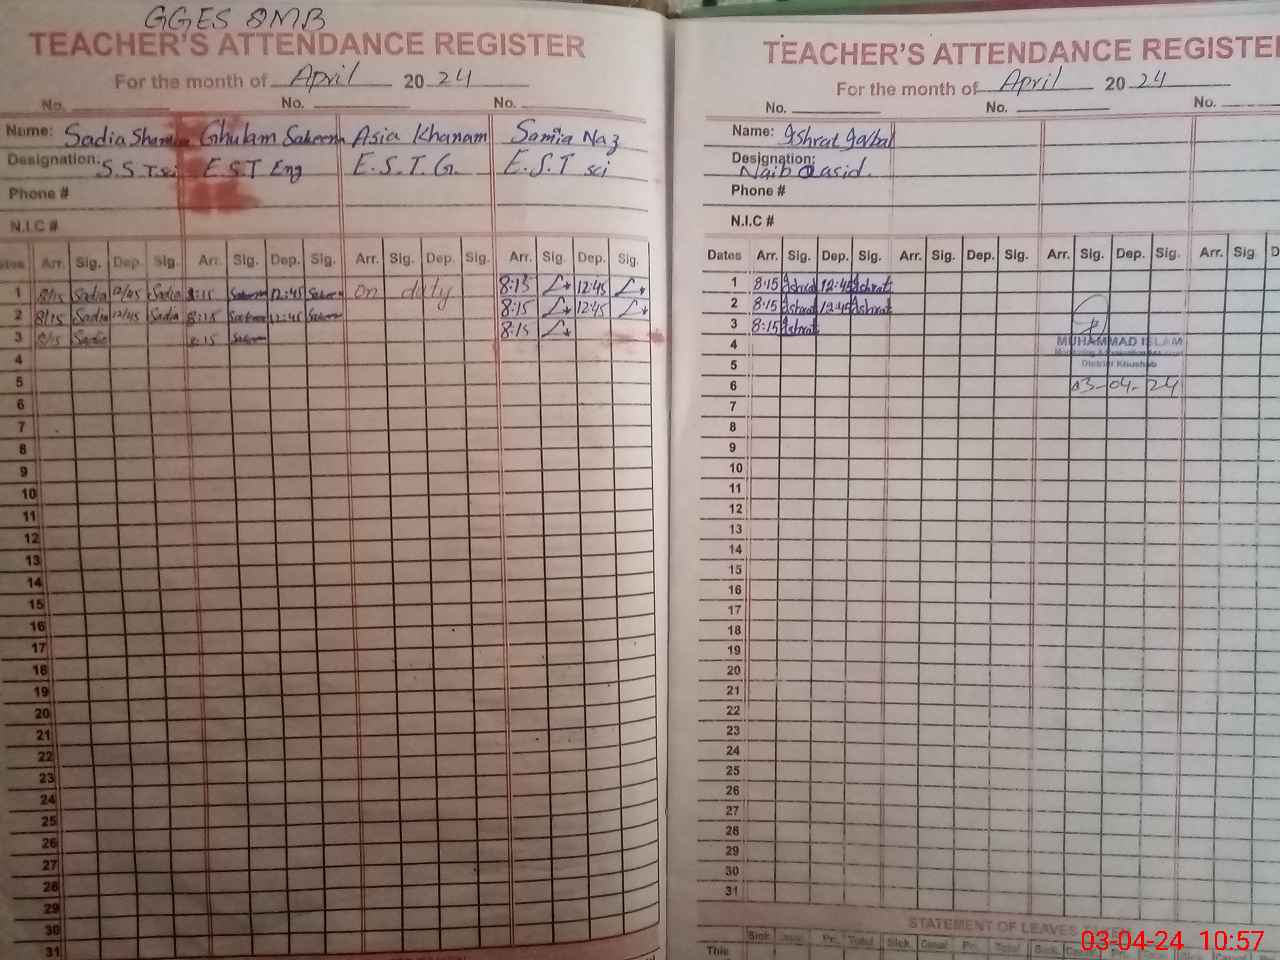 GGES 8MB
TEACHER'S ATTENDANCE REGISTER
For the month of April 2024
No. No. No.
Name: Sadia Ghulam Sakeena Asia Khanam Samia Naz
Designation: S.S.T.sci E.S.T Eng E.S.T.G. E.S.T sci
Phone #
N.I.C #
Dates Arr. Sig. Dep. Sig. Arr. Sig. Dep. Sig. Arr. Sig. Dep. Sig. Arr. Sig. Dep. Sig.
1 8/15 Sadia 12/45 Sadia 8:15 Sakeena 12:45 Sakeena on duty 8:15 12:45
2 8/15 Sadia 12/45 Sadia 8:15 Sakeena 12:45 Sakeena 8:15 12:45
3 8/15 Sadia 8:15 Sakeena 8:15
4
5
6
7
8
9
10
11
12
13
14
15
16
17
18
19
20
21
22
23
24
25
26
27
28
29
30
31
TEACHER'S ATTENDANCE REGISTER
For the month of April 2024
No. No. No.
Name: Ishrat Iqbal
Designation: Naib Qasid.
Phone #
N.I.C #
Dates Arr. Sig. Dep. Sig. Arr. Sig. Dep. Sig. Arr. Sig. Dep. Sig. Arr. Sig.
1 8:15 Ishrat 12:45 Ishrat
2 8:15 Ishrat 12:45 Ishrat
3 8:15 Ishrat
4 MUHAMMAD ISLAM
5 District Khushab
6 03-04-24
7
8
9
10
11
12
13
14
15
16
17
18
19
20
21
22
23
24
25
26
27
28
29
30
31
STATEMENT OF LEAVES
This Sick Casual Pr. Total Sick Casual Pr. Total Sick
03-04-24 10:57